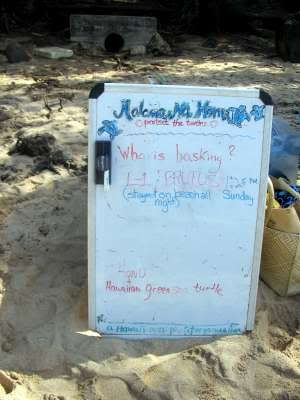 Malama Na Honu
protect the turtles
Who is basking?
L-1 BRUTUS 1:25 PM
(stayed on beach all night) Sunday
Honu
Hawaiian green sea turtle